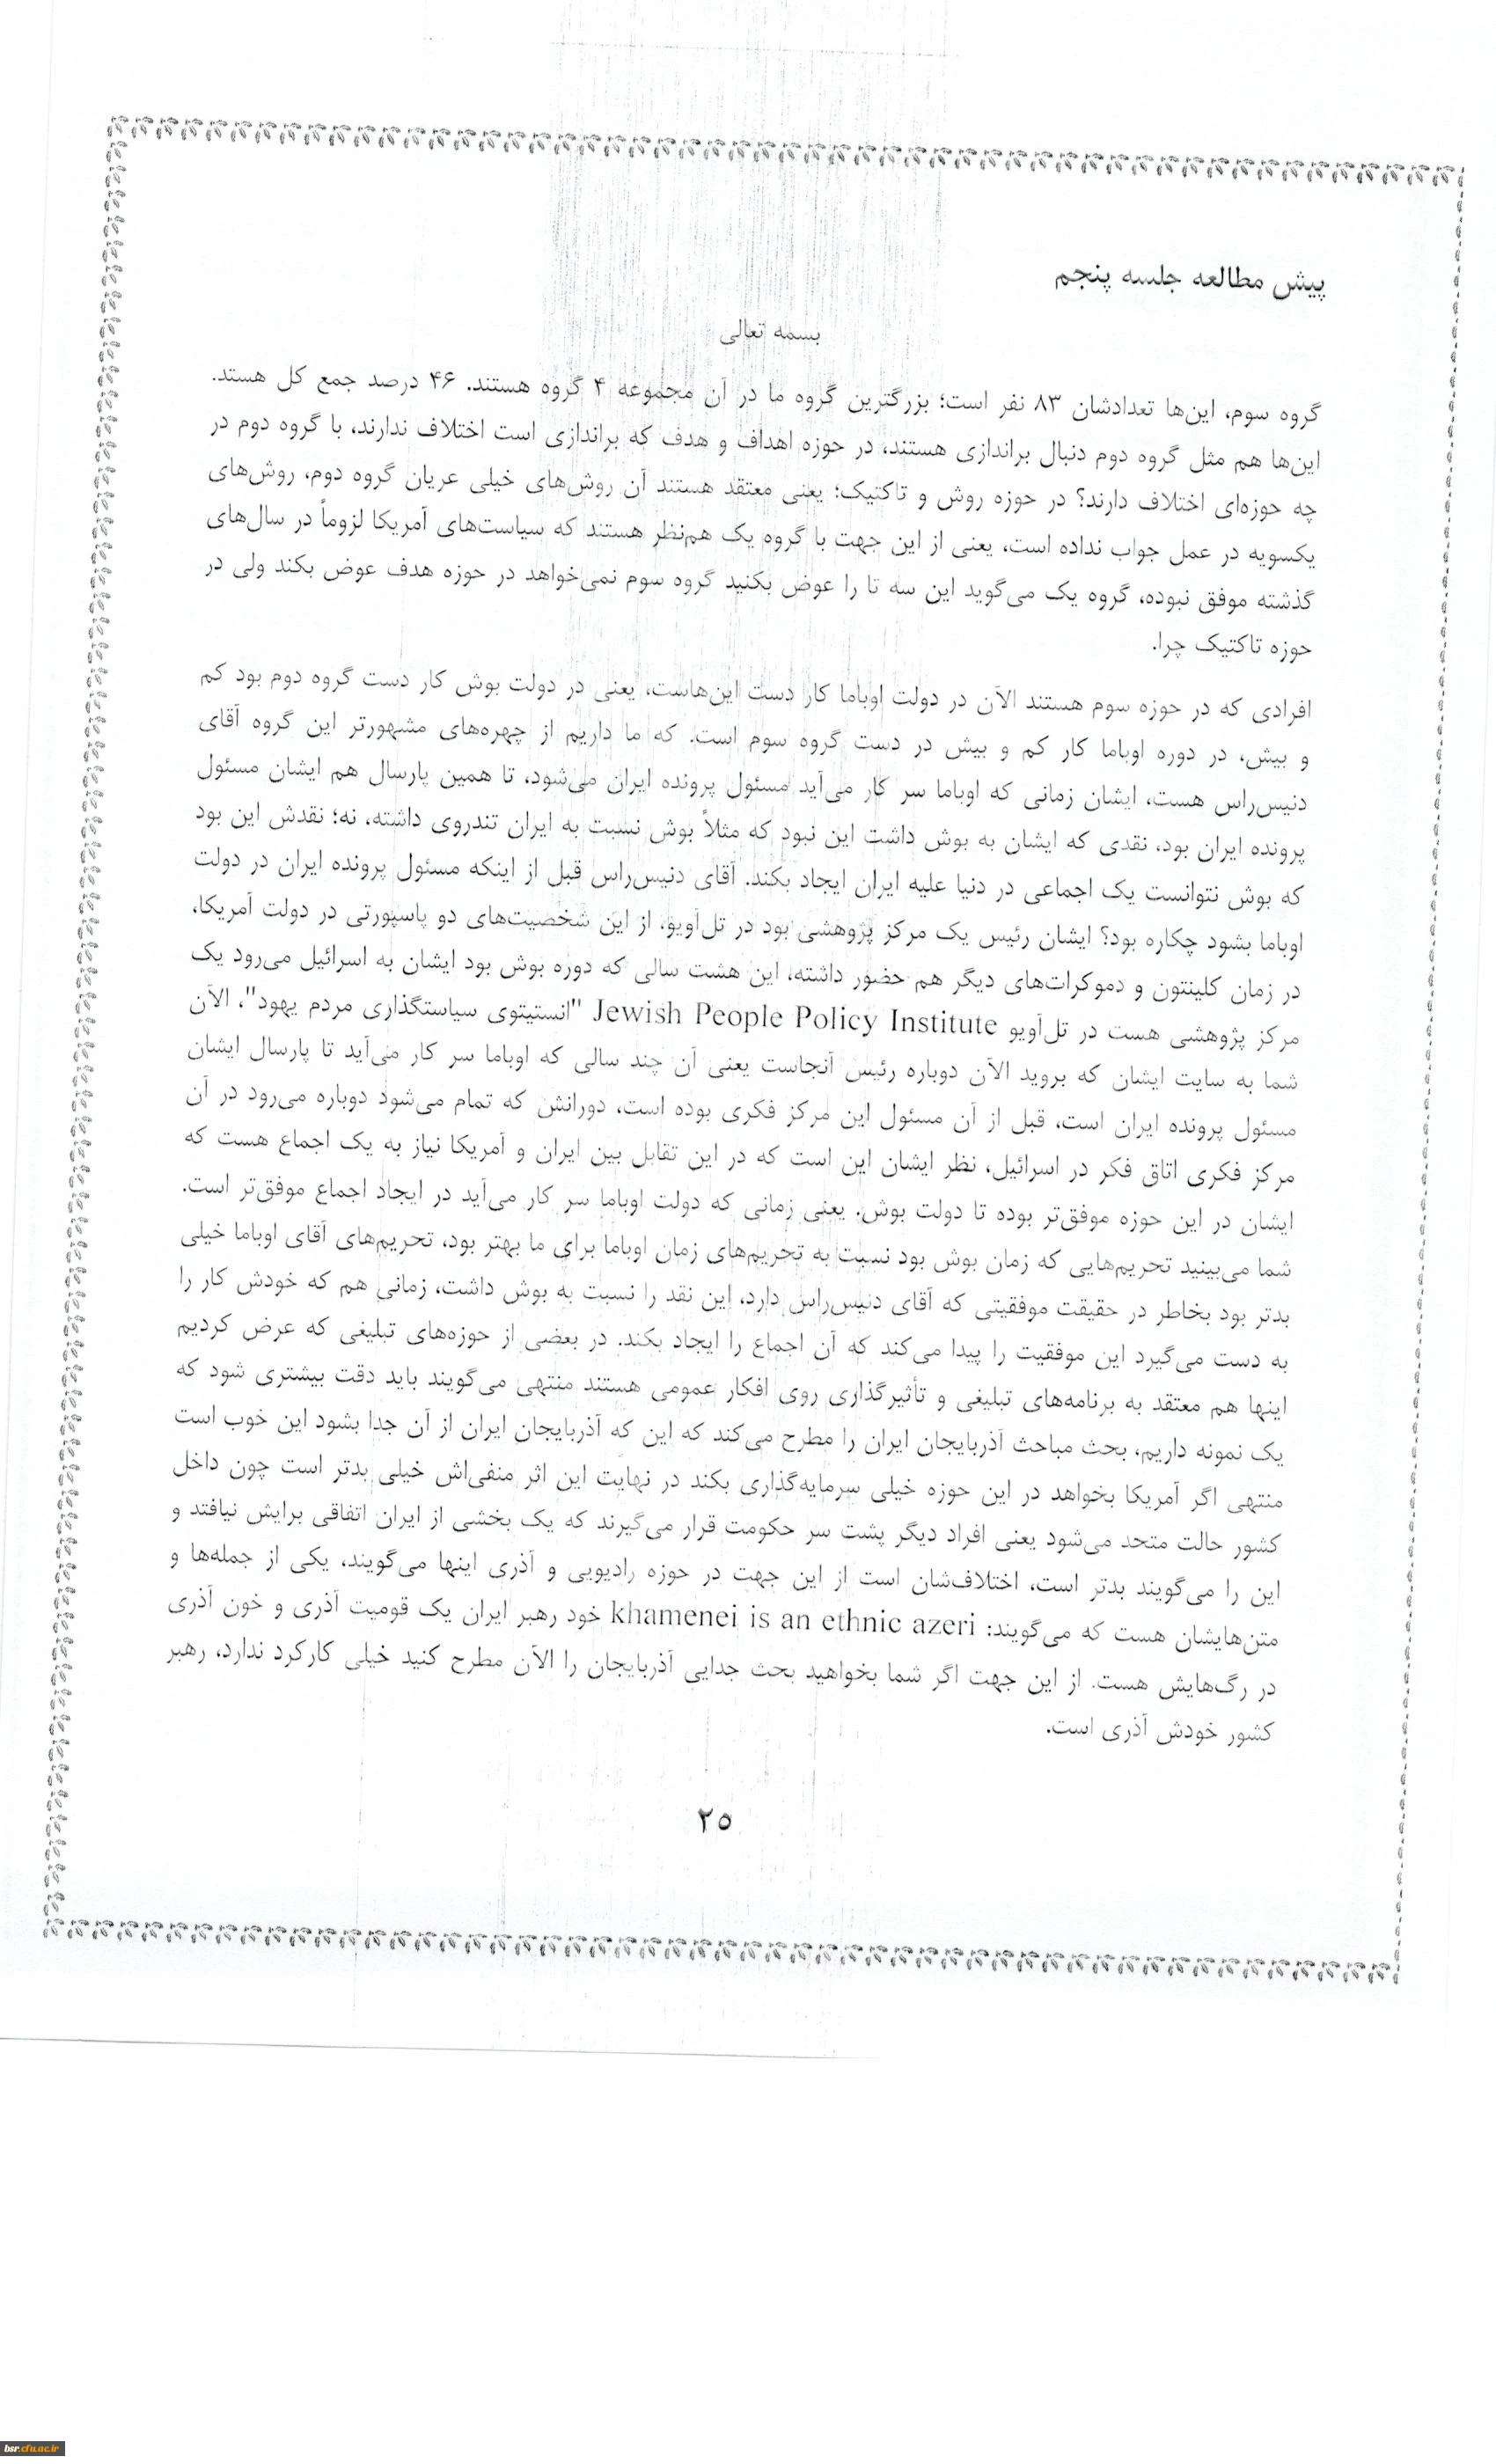 پیش مطالعه جلسه پنجم
بسمه تعالی
گروه سوم، این‌ها تعدادشان ۸۳ نفر است؛ بزرگترین گروه ما در آن مجموعه ۴ گروه هستند. ۴۶ درصد جمع کل هستد.
این‌ها هم مثل گروه دوم دنبال براندازی هستند، در حوزه اهداف و هدف که براندازی است اختلاف ندارند، با گروه دوم در
چه حوزه‌ای اختلاف دارند؟ در حوزه روش و تاکتیک؛ یعنی معتقد هستند آن روش‌های خیلی عریان گروه دوم، روش‌های
یکسویه در عمل جواب نداده است، یعنی از این جهت با گروه یک هم‌نظر هستند که سیاست‌های آمریکا لزوماً در سال‌های
گذشته موفق نبوده، گروه یک می‌گوید این سه تا را عوض بکنید گروه سوم نمی‌خواهد در حوزه هدف عوض بکند ولی در
حوزه تاکتیک چرا.
افرادی که در حوزه سوم هستند الآن در دولت اوباما کار دست این‌هاست، یعنی در دولت بوش کار دست گروه دوم بود کم
و بیش، در دوره اوباما کار کم و بیش در دست گروه سوم است. که ما داریم از چهره‌های مشهورتر این گروه آقای
دنیس‌راس هست، ایشان زمانی که اوباما سر کار می‌آید مسئول پرونده ایران می‌شود، تا همین پارسال هم ایشان مسئول
پرونده ایران بود، نقدی که ایشان به بوش داشت این نبود که مثلاً بوش نسبت به ایران تندروی داشته، نه؛ نقدش این بود
که بوش نتوانست یک اجماعی در دنیا علیه ایران ایجاد بکند. آقای دنیس‌راس قبل از اینکه مسئول پرونده ایران در دولت
اوباما بشود چکاره بود؟ ایشان رئیس یک مرکز پژوهشی بود در تل‌آویو، از این شخصیت‌های دو پاسپورتی در دولت آمریکا،
در زمان کلینتون و دموکرات‌های دیگر هم حضور داشته، این هشت سالی که دوره بوش بود ایشان به اسرائیل می‌رود یک
مرکز پژوهشی هست در تل‌آویو Jewish People Policy Institute "انستیتوی سیاستگذاری مردم یهود"، الآن
شما به سایت ایشان که بروید الآن دوباره رئیس آنجاست یعنی آن چند سالی که اوباما سر کار می‌آید تا پارسال ایشان
مسئول پرونده ایران است، قبل از آن مسئول این مرکز فکری بوده است، دورانش که تمام می‌شود دوباره می‌رود در آن
مرکز فکری اتاق فکر در اسرائیل، نظر ایشان این است که در این تقابل بین ایران و آمریکا نیاز به یک اجماع هست که
ایشان در این حوزه موفق‌تر بوده تا دولت بوش. یعنی زمانی که دولت اوباما سر کار می‌آید در ایجاد اجماع موفق‌تر است.
شما می‌بینید تحریم‌هایی که زمان بوش بود نسبت به تحریم‌های زمان اوباما برای ما بهتر بود، تحریم‌های آقای اوباما خیلی
بدتر بود بخاطر در حقیقت موفقیتی که آقای دنیس‌راس دارد، این نقد را نسبت به بوش داشت، زمانی هم که خودش کار را
به دست می‌گیرد این موفقیت را پیدا می‌کند که آن اجماع را ایجاد بکند. در بعضی از حوزه‌های تبلیغی که عرض کردیم
اینها هم معتقد به برنامه‌های تبلیغی و تأثیرگذاری روی افکار عمومی هستند منتهی می‌گویند باید دقت بیشتری شود که
یک نمونه داریم، بحث مباحث آذربایجان ایران را مطرح می‌کند که این که آذربایجان ایران از آن جدا بشود این خوب است
منتهی اگر آمریکا بخواهد در این حوزه خیلی سرمایه‌گذاری بکند در نهایت این اثر منفی‌اش خیلی بدتر است چون داخل
کشور حالت متحد می‌شود یعنی افراد دیگر پشت سر حکومت قرار می‌گیرند که یک بخشی از ایران اتفاقی برایش نیافتد و
این را می‌گویند بدتر است، اختلاف‌شان است از این جهت در حوزه رادیویی و آذری اینها می‌گویند، یکی از جمله‌ها و
متن‌هایشان هست که می‌گویند: khamenei is an ethnic azeri خود رهبر ایران یک قومیت آذری و خون آذری
در رگ‌هایش هست. از این جهت اگر شما بخواهید بحث جدایی آذربایجان را الآن مطرح کنید خیلی کارکرد ندارد، رهبر
کشور خودش آذری است.
۲۵
bsr.cfu.ac.ir